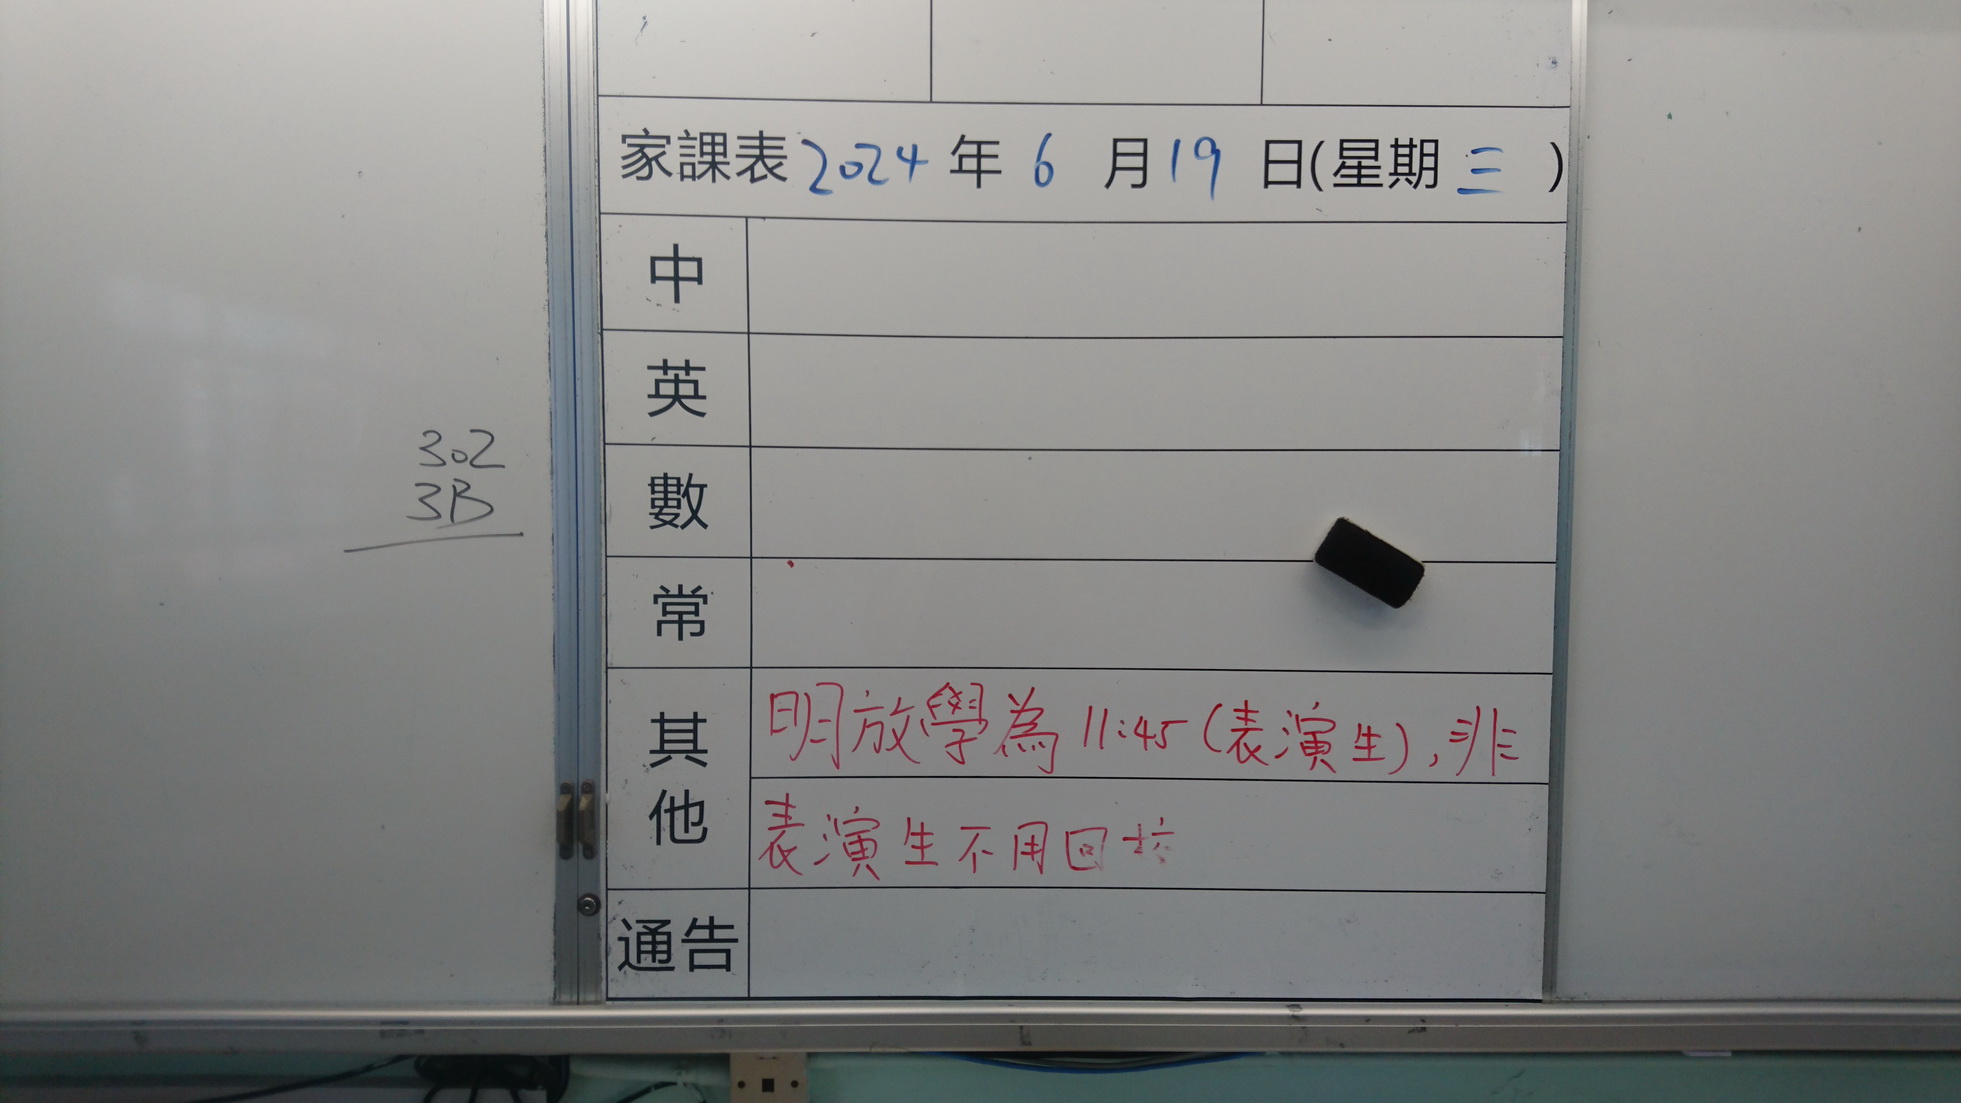 家課表 2024 年 6 月 19 日(星期 三 )
中
英
302
3B
數
常
其他
明放學為 11:45 (表演生), 非
表演生不用回校
通告